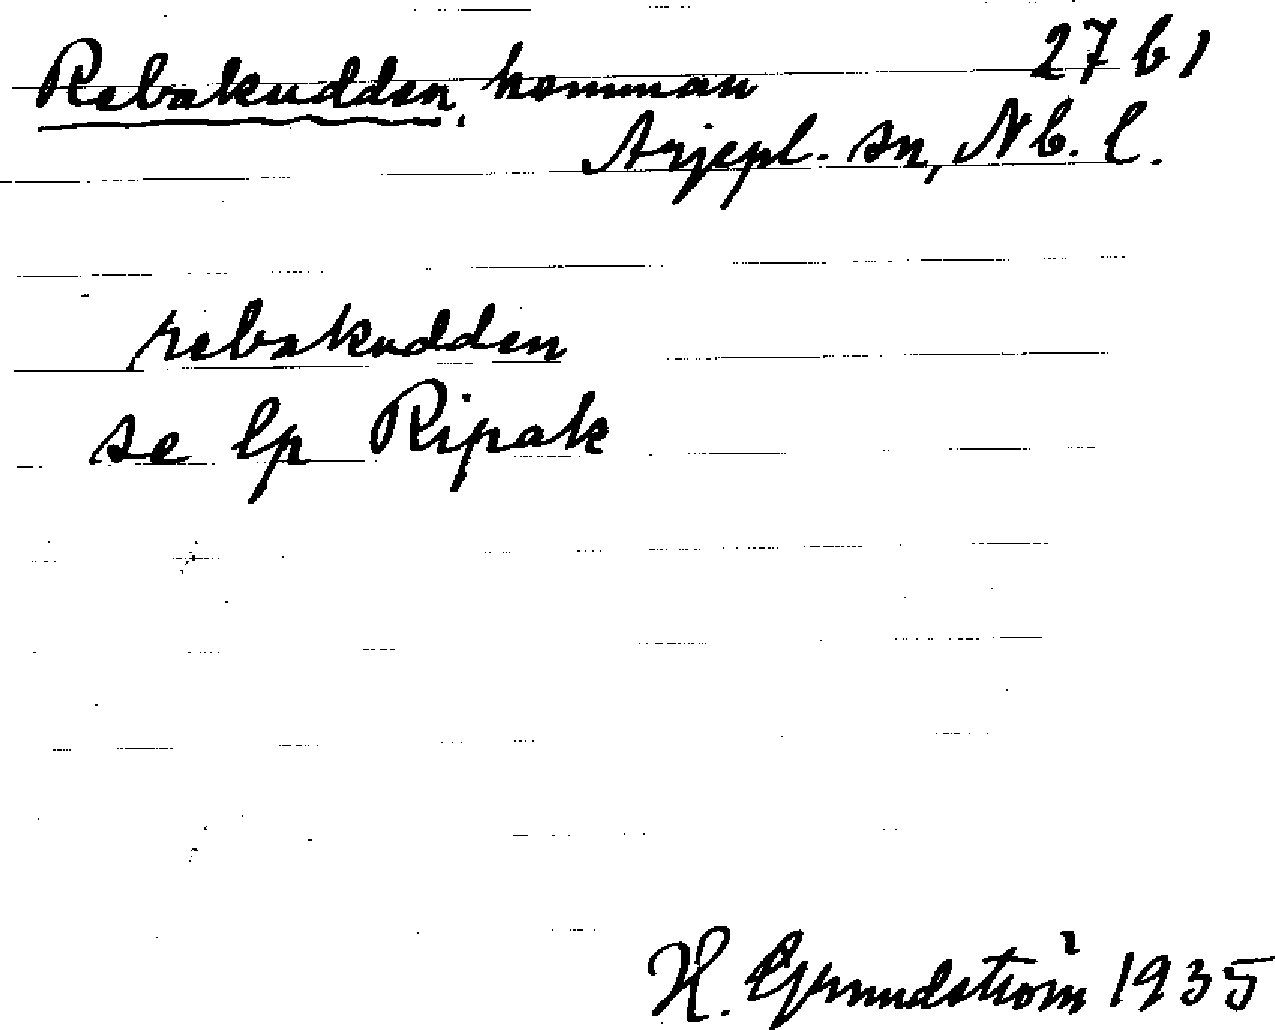 Rebakudden, hemman 27 b 1
Arjepl. sn, Nb. l.
rebakudden
se lp Ripak
H. Grundström 1935